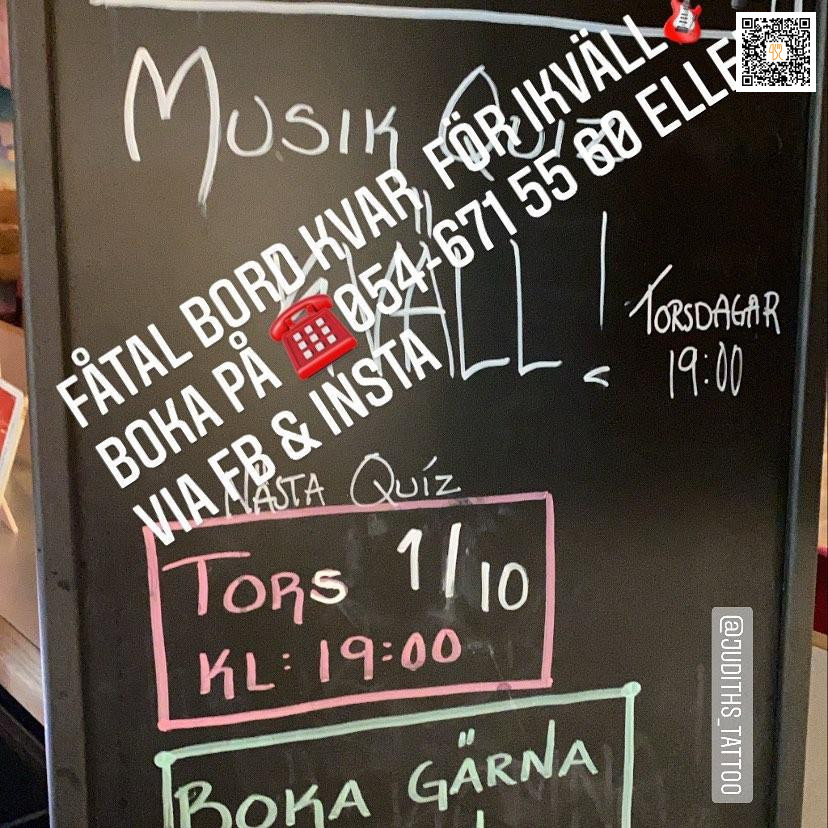 MUSIK QUIZ
KVÄLL!
TORSDAGAR
19:00
FÅTAL BORD KVAR FÖR IKVÄLL
BOKA PÅ 054-671 55 60 ELLER
VIA FB & INSTA
NÄSTA QUÍZ
TORS 1/10
KL: 19:00
BOKA GÄRNA
@JUDITHS_TATTOO